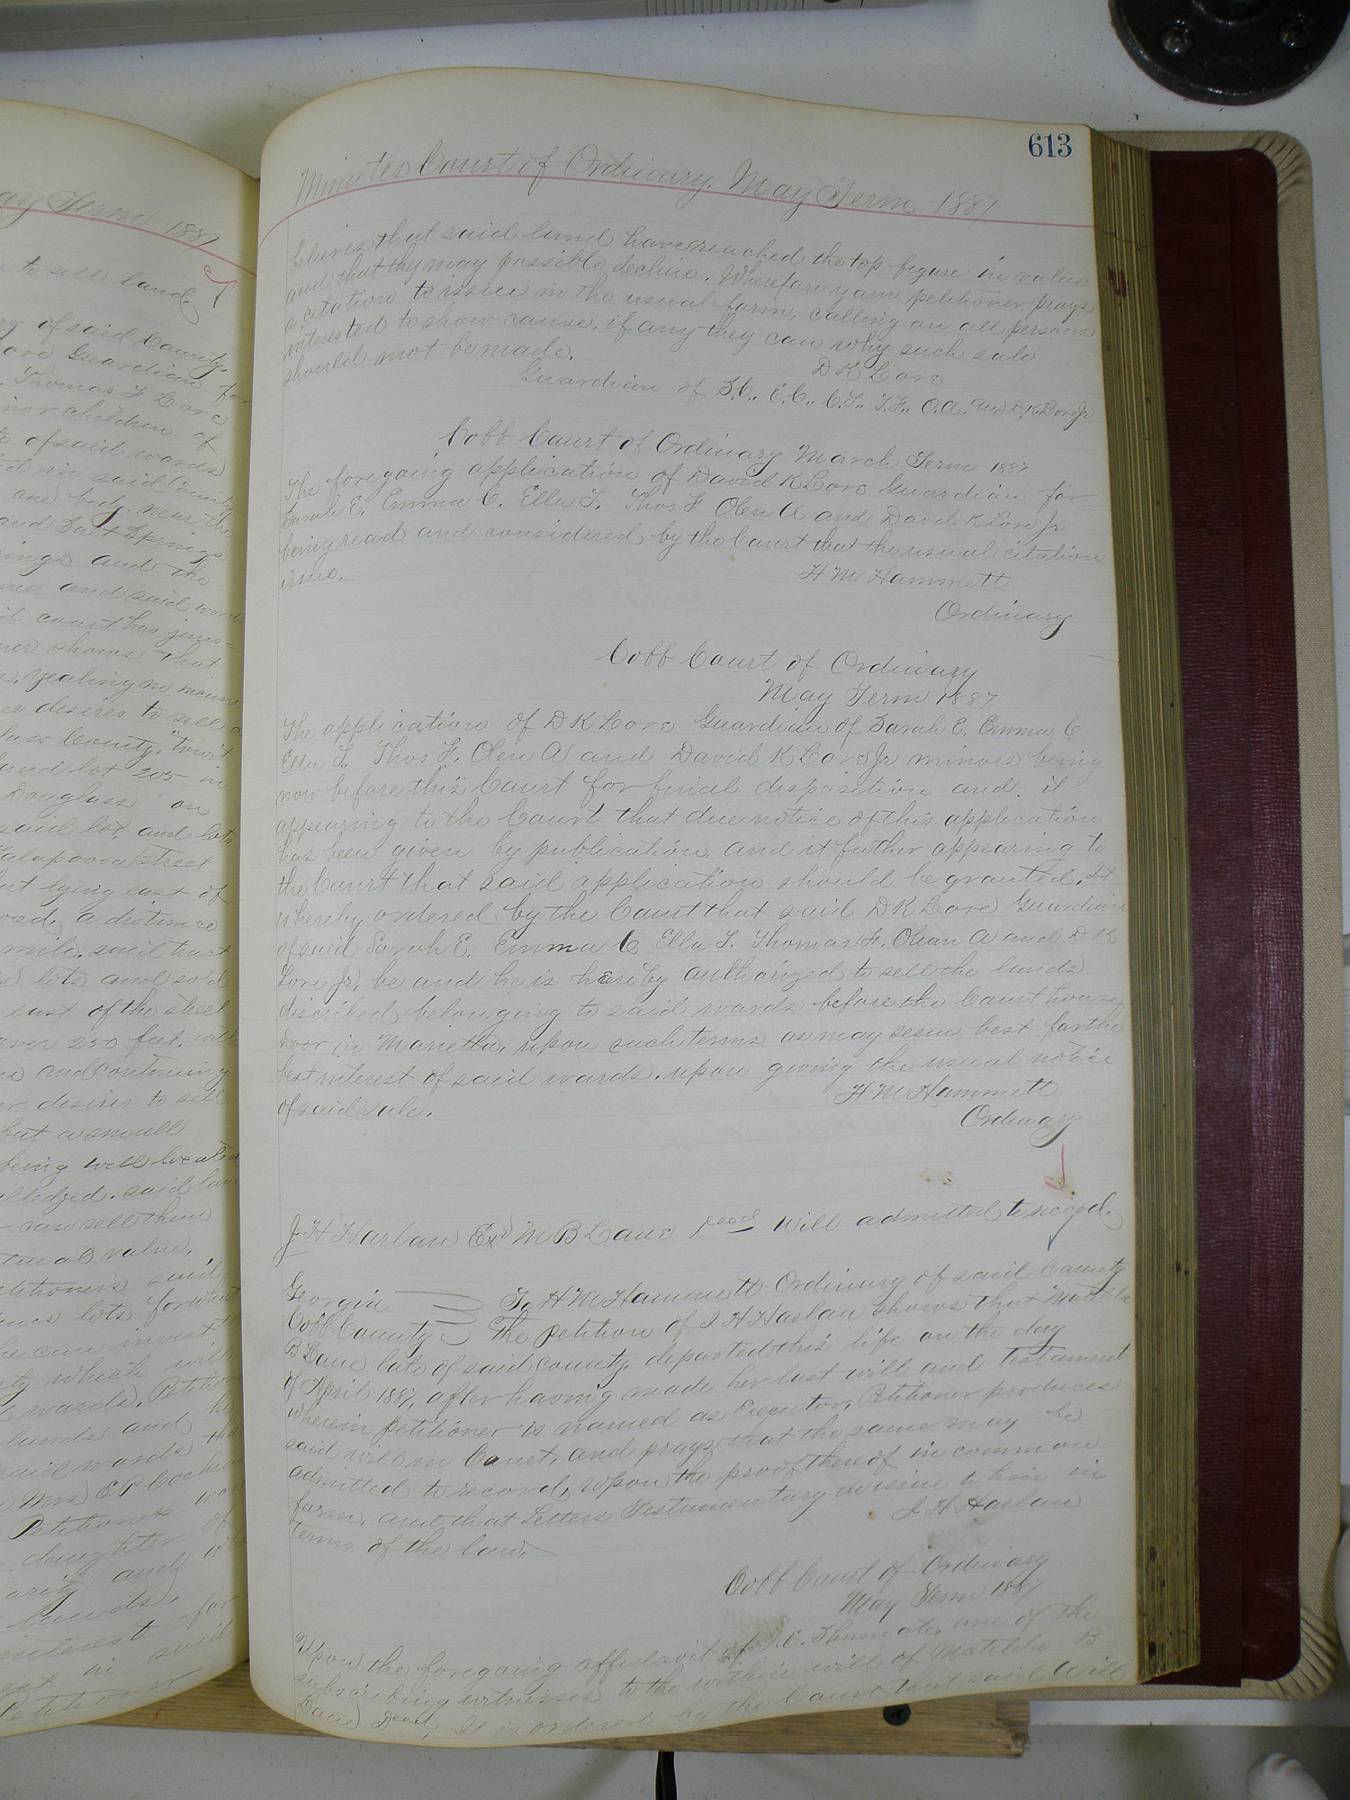 ay Term 1887
to sell land
ry of said County.
ore Guardian for
Thomas F Lore
inor children of
te of said wards
ed in said County
one body, near the
and Salt Springs
ings and the
and said wards
il court has juris=
ner shows that
yealing no income
er desires to sell
lass County, "towit
land lot 205 in
Douglass on
said lot and lots
Talapoosa street
but lying east of
road, a distance
mile. said tract
lots and sold
east of the street
over 250 feet, with
and continuing
er desires to sell
but a small
being well located
said land
can sell them
value,
etitioner said
lots for
he can invest
which will
wards, Petition
lands and he
said wards
Mrs
Petitioner
daughter of
and
lands,
interest for
in said
Petitioner
613
Minutes Court of Ordinary. May Term 1887
believes that said land have reached the top figure in value
and that thy may possible decline. Wherefore your petitioner prays
a citation to issue in the usual form, calling on all persons
intersted to show cause, if any they can why such sale
should not be made.
D K Lore
Guardian of S.E., E.C., E.T., T.F., O.A. and D.K. Lore Jr
Cobb Court of Ordinary March Term 1887
The foregoing application of David K Lore Guardian for
Sarah E. Emma C. Ella T. Thos F Olen A and David K Lore Jr
being read and considered by the Court that the usual citation
issue.
H M Hammett
Ordinary
Cobb Court of Ordinary
May Term 1887
The application of D K Lore Guardian of Sarah E. Emma C
Ella T. Thos F. Olen A and David K Lore Jr minors being
now before this Court for final disposition and. it
appearing to the Court that due notice of this application
has been given by publication, and it futher appearing to
the Court that said application should be granted. It
is hereby ordered by the Court that said D K Lore Guardian
of said Sarah E. Emma C Ella T. Thomas F. Olean A and D K
Lore Jr, be and he is hereby authorized to sell the lands
discribed belonging to said wards before the Court house
Door in Marietta, upon such terms as may seem best for the
best interest of said wards. upon giving the usual notice
of said sale.
H M Hammett
Ordinary
J H Harlan Exr M B Lane Decd Will admitted to record.
Georgia
To H M Hammett Ordinary of said County
Cobb County
The Petition of J H Harlan shows that Matilda
B Lane late of said county departed this life on the day
of April 1887, after having made her last will and testament
wherein petitioner is named as Executor, Petitioner produces
said will in Court, and prays that the same may be
admitted to record, upon the proof thereof in common
form, and that Letters Testamentary issue to him in
terms of the law.
J H Harlan
Cobb Court of Ordinary
May Term 1887
Upon the foregoing affidavit of one of the
subscribing witnesses to the within will of Matilda B
Lane Decd, It is ordered by the Court that said Will